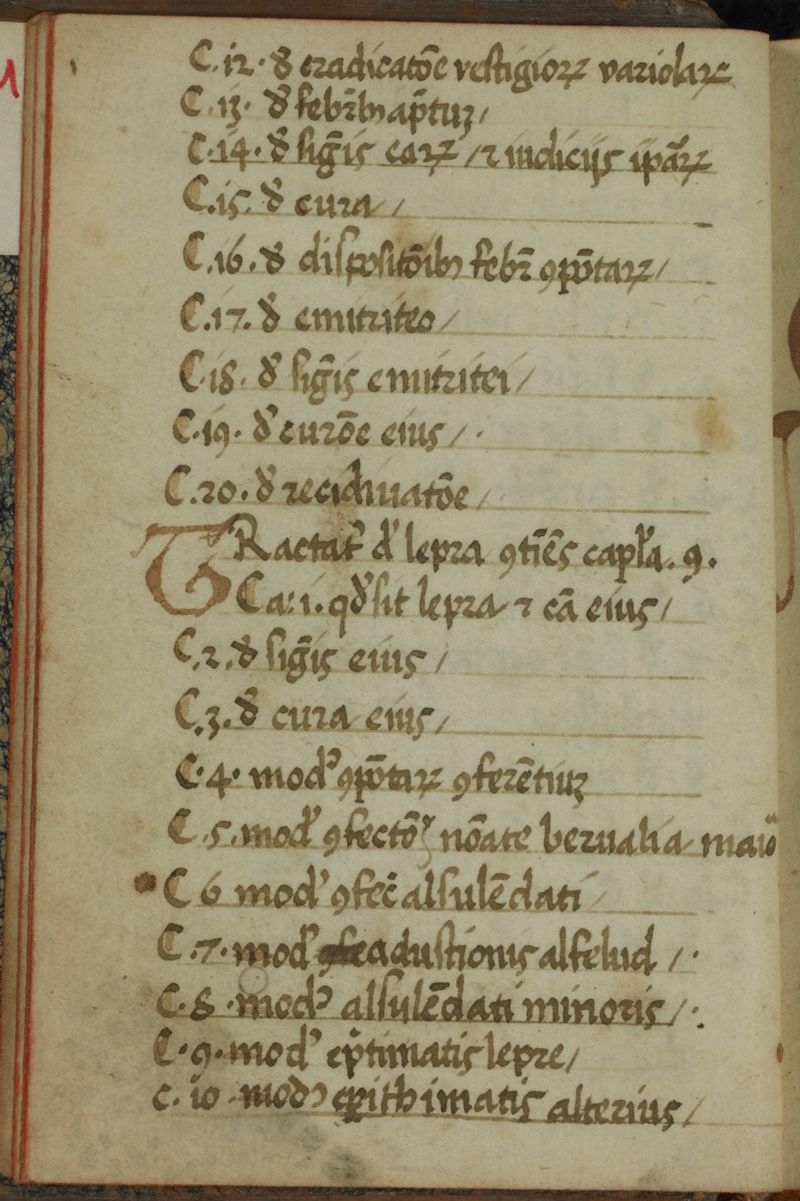 C.12. đ eradicatōe vestigioꝝ variolaꝝ
C.13. đ febꝛibꝫ aptuꝫ /
C.14. đ sigīs eaꝝ / ⁊ indicijs ipaꝝ
C.15. đ cura /
C.16. đ dispositōibꝫ febꝛ ꝯpōtaꝝ /
C.17. đ emitriteo /
C.18. đ sigīs emitritei /
C.19. đ curōe eius / .
C.20. đ recidiuatōe /
TRactat᾽ đ lepra ꝯtiēs capla. 9.
Ca: 1. qđ sit lepra ⁊ cā eius /
C.2. đ sigīs eius /
C.3. đ cura eius /
C.4. modꝰ ꝯpōtaꝝ ꝯferētiuꝫ
C.5. modꝰ ꝯfectōꝭ nōate berualia maio
C 6 modꝰ ꝯfec̄ alsulēdati /
C.7. modꝰ adustionis alfelud / .
C.8. modꝰ alsulēdati minoris / .
C.9. modꝰ eptimatis lepre /
C.10 modꝰ epithimatis alterius /